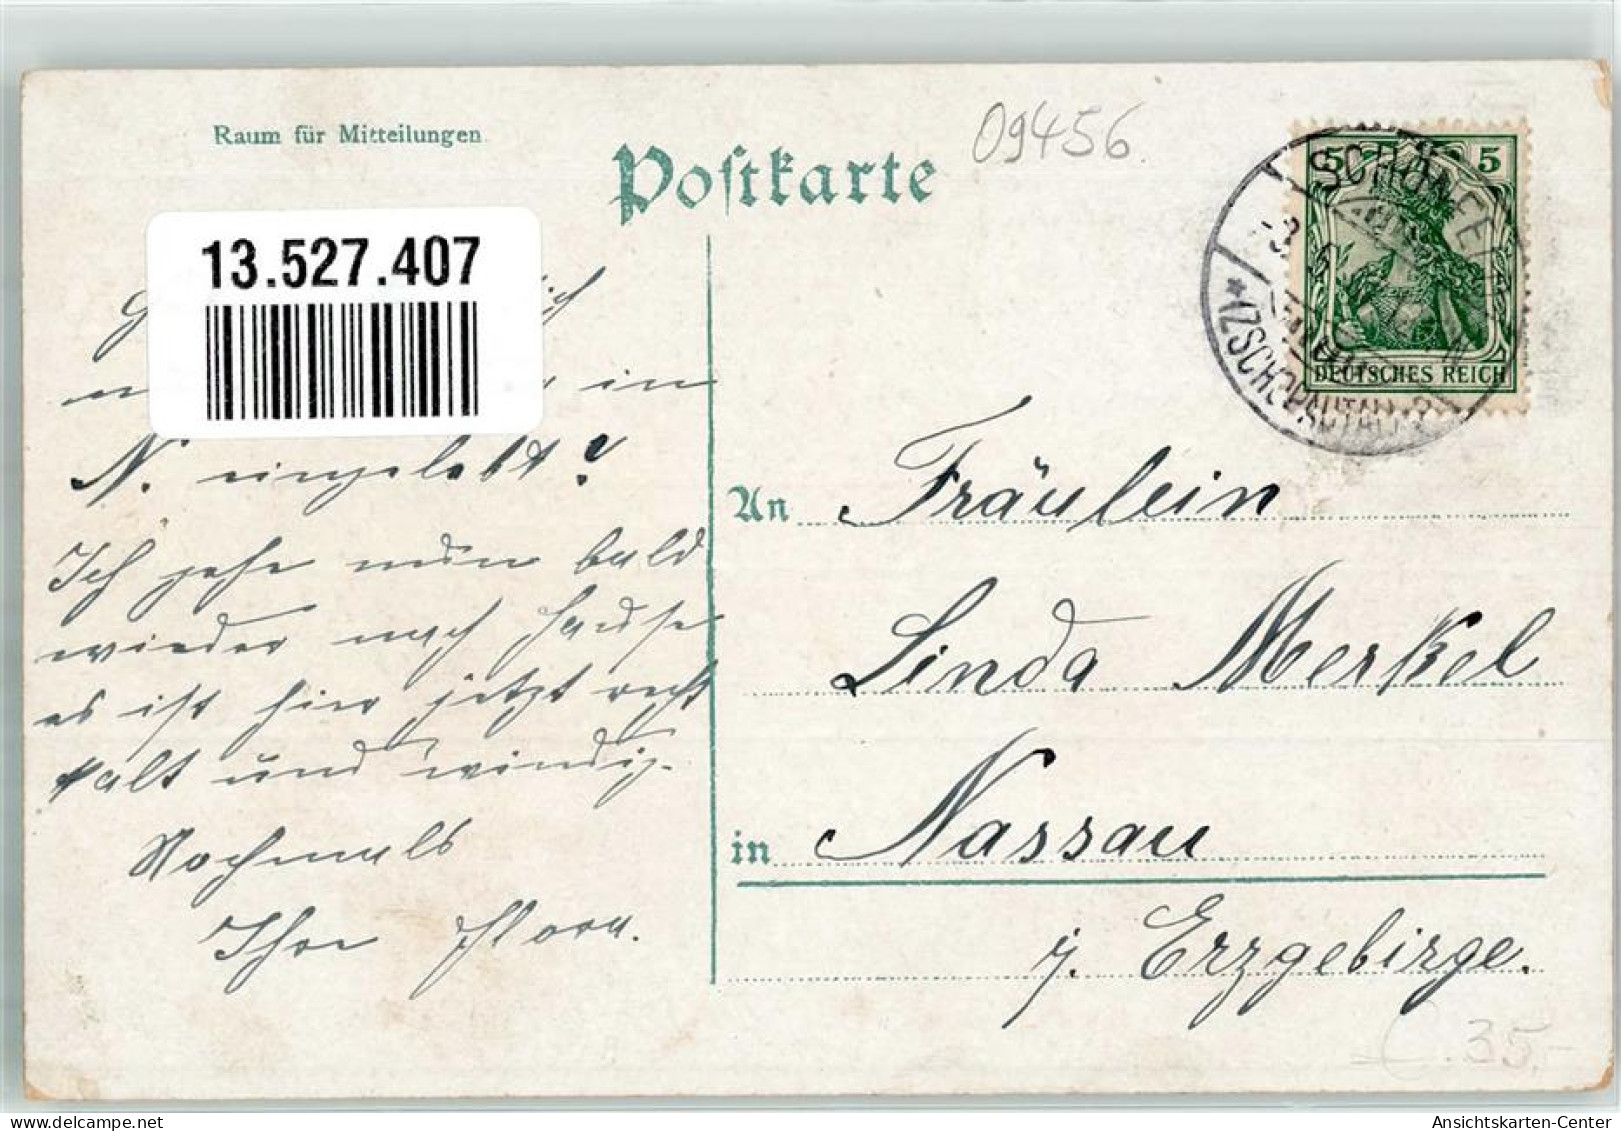 Raum für Mitteilungen
Postkarte
09456.
13.527.407
in
N. eingelebt?
Ich gehe nun bald
wieder nach Hause
es ist hier jetzt recht
kalt und windig.
Nochmals
Ihre Flora.
5 5
DEUTSCHES REICH
(ZSCHOPAUTAL)
An Fräulein
Linda Merkel
in Nassau
i. Erzgebirge.
35,-
Ansichtskarten-Center